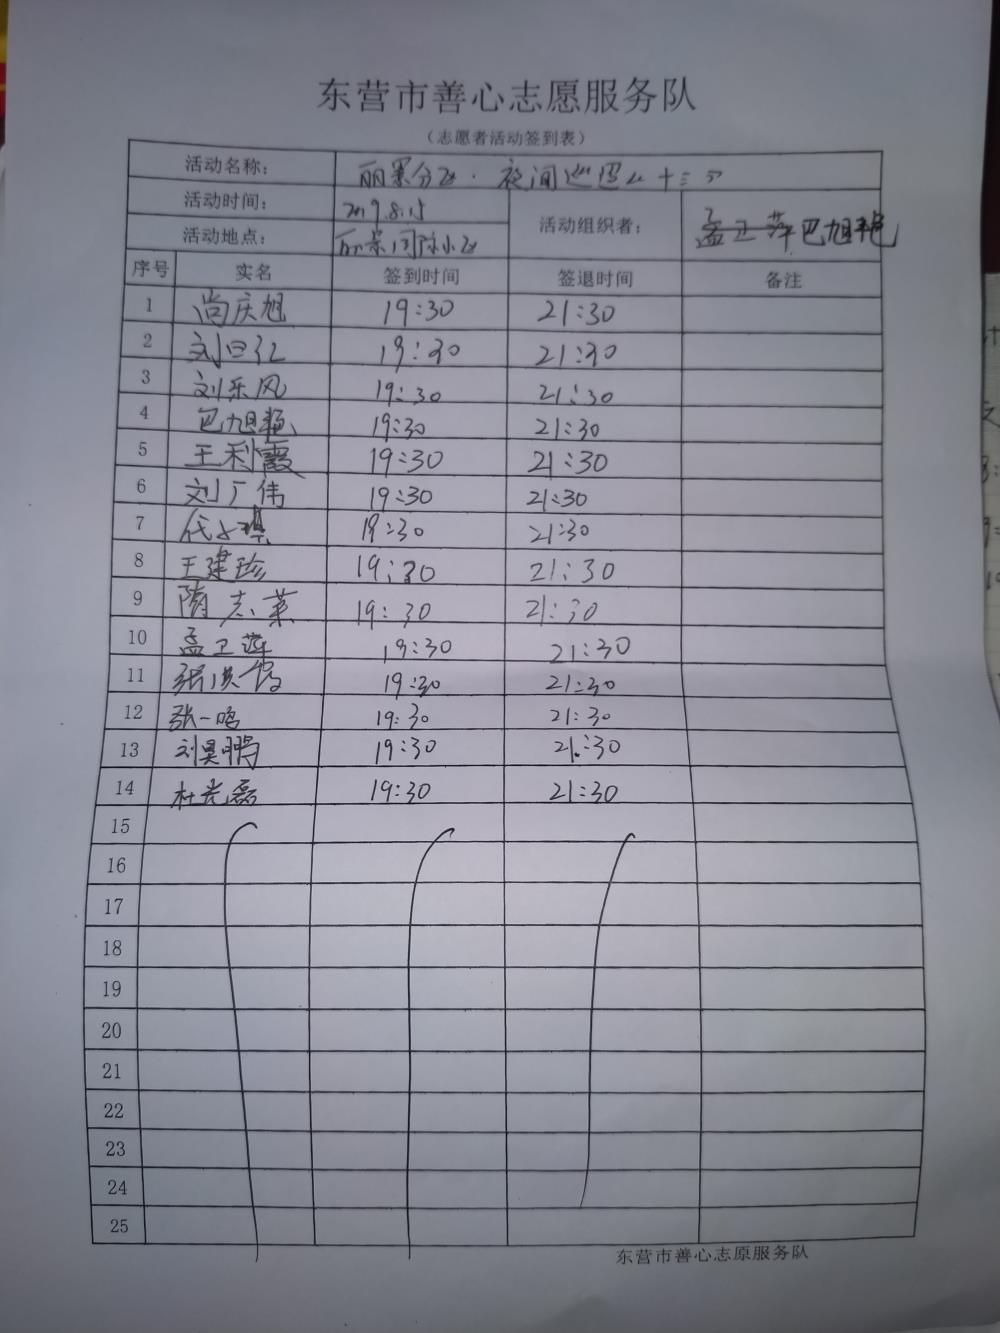 东营市善心志愿服务队
（志愿者活动签到表）
活动名称： 丽景分队·夜间巡逻
活动时间： 2019.8.15 活动组织者： 孟卫萍 巴旭艳
活动地点： 丽景国际小区
序号 实名 签到时间 签退时间 备注
1 尚庆旭 19:30 21:30
2 刘曰仁 19:30 21:30
3 刘乐风 19:30 21:30
4 巴旭艳 19:30 21:30
5 王利霞 19:30 21:30
6 刘广伟 19:30 21:30
7 19:30 21:30
8 王建珍 19:30 21:30
9 隋志英 19:30 21:30
10 孟卫萍 19:30 21:30
11 19:30 21:30
12 张一鸣 19:30 21:30
13 刘昊鹏 19:30 21:30
14 杜光磊 19:30 21:30
15
16
17
18
19
20
21
22
23
24
25
东营市善心志原服务队